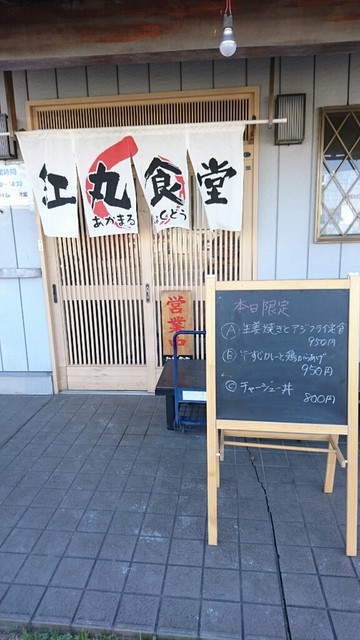 紅丸食堂
あかまる しょくどう
営業中
本日限定
Ⓐ 生姜焼きとアジフライ定食
950円
Ⓑ 牛すじカレーと鶏からあげ
950円
Ⓒ チャーシュー丼
800円